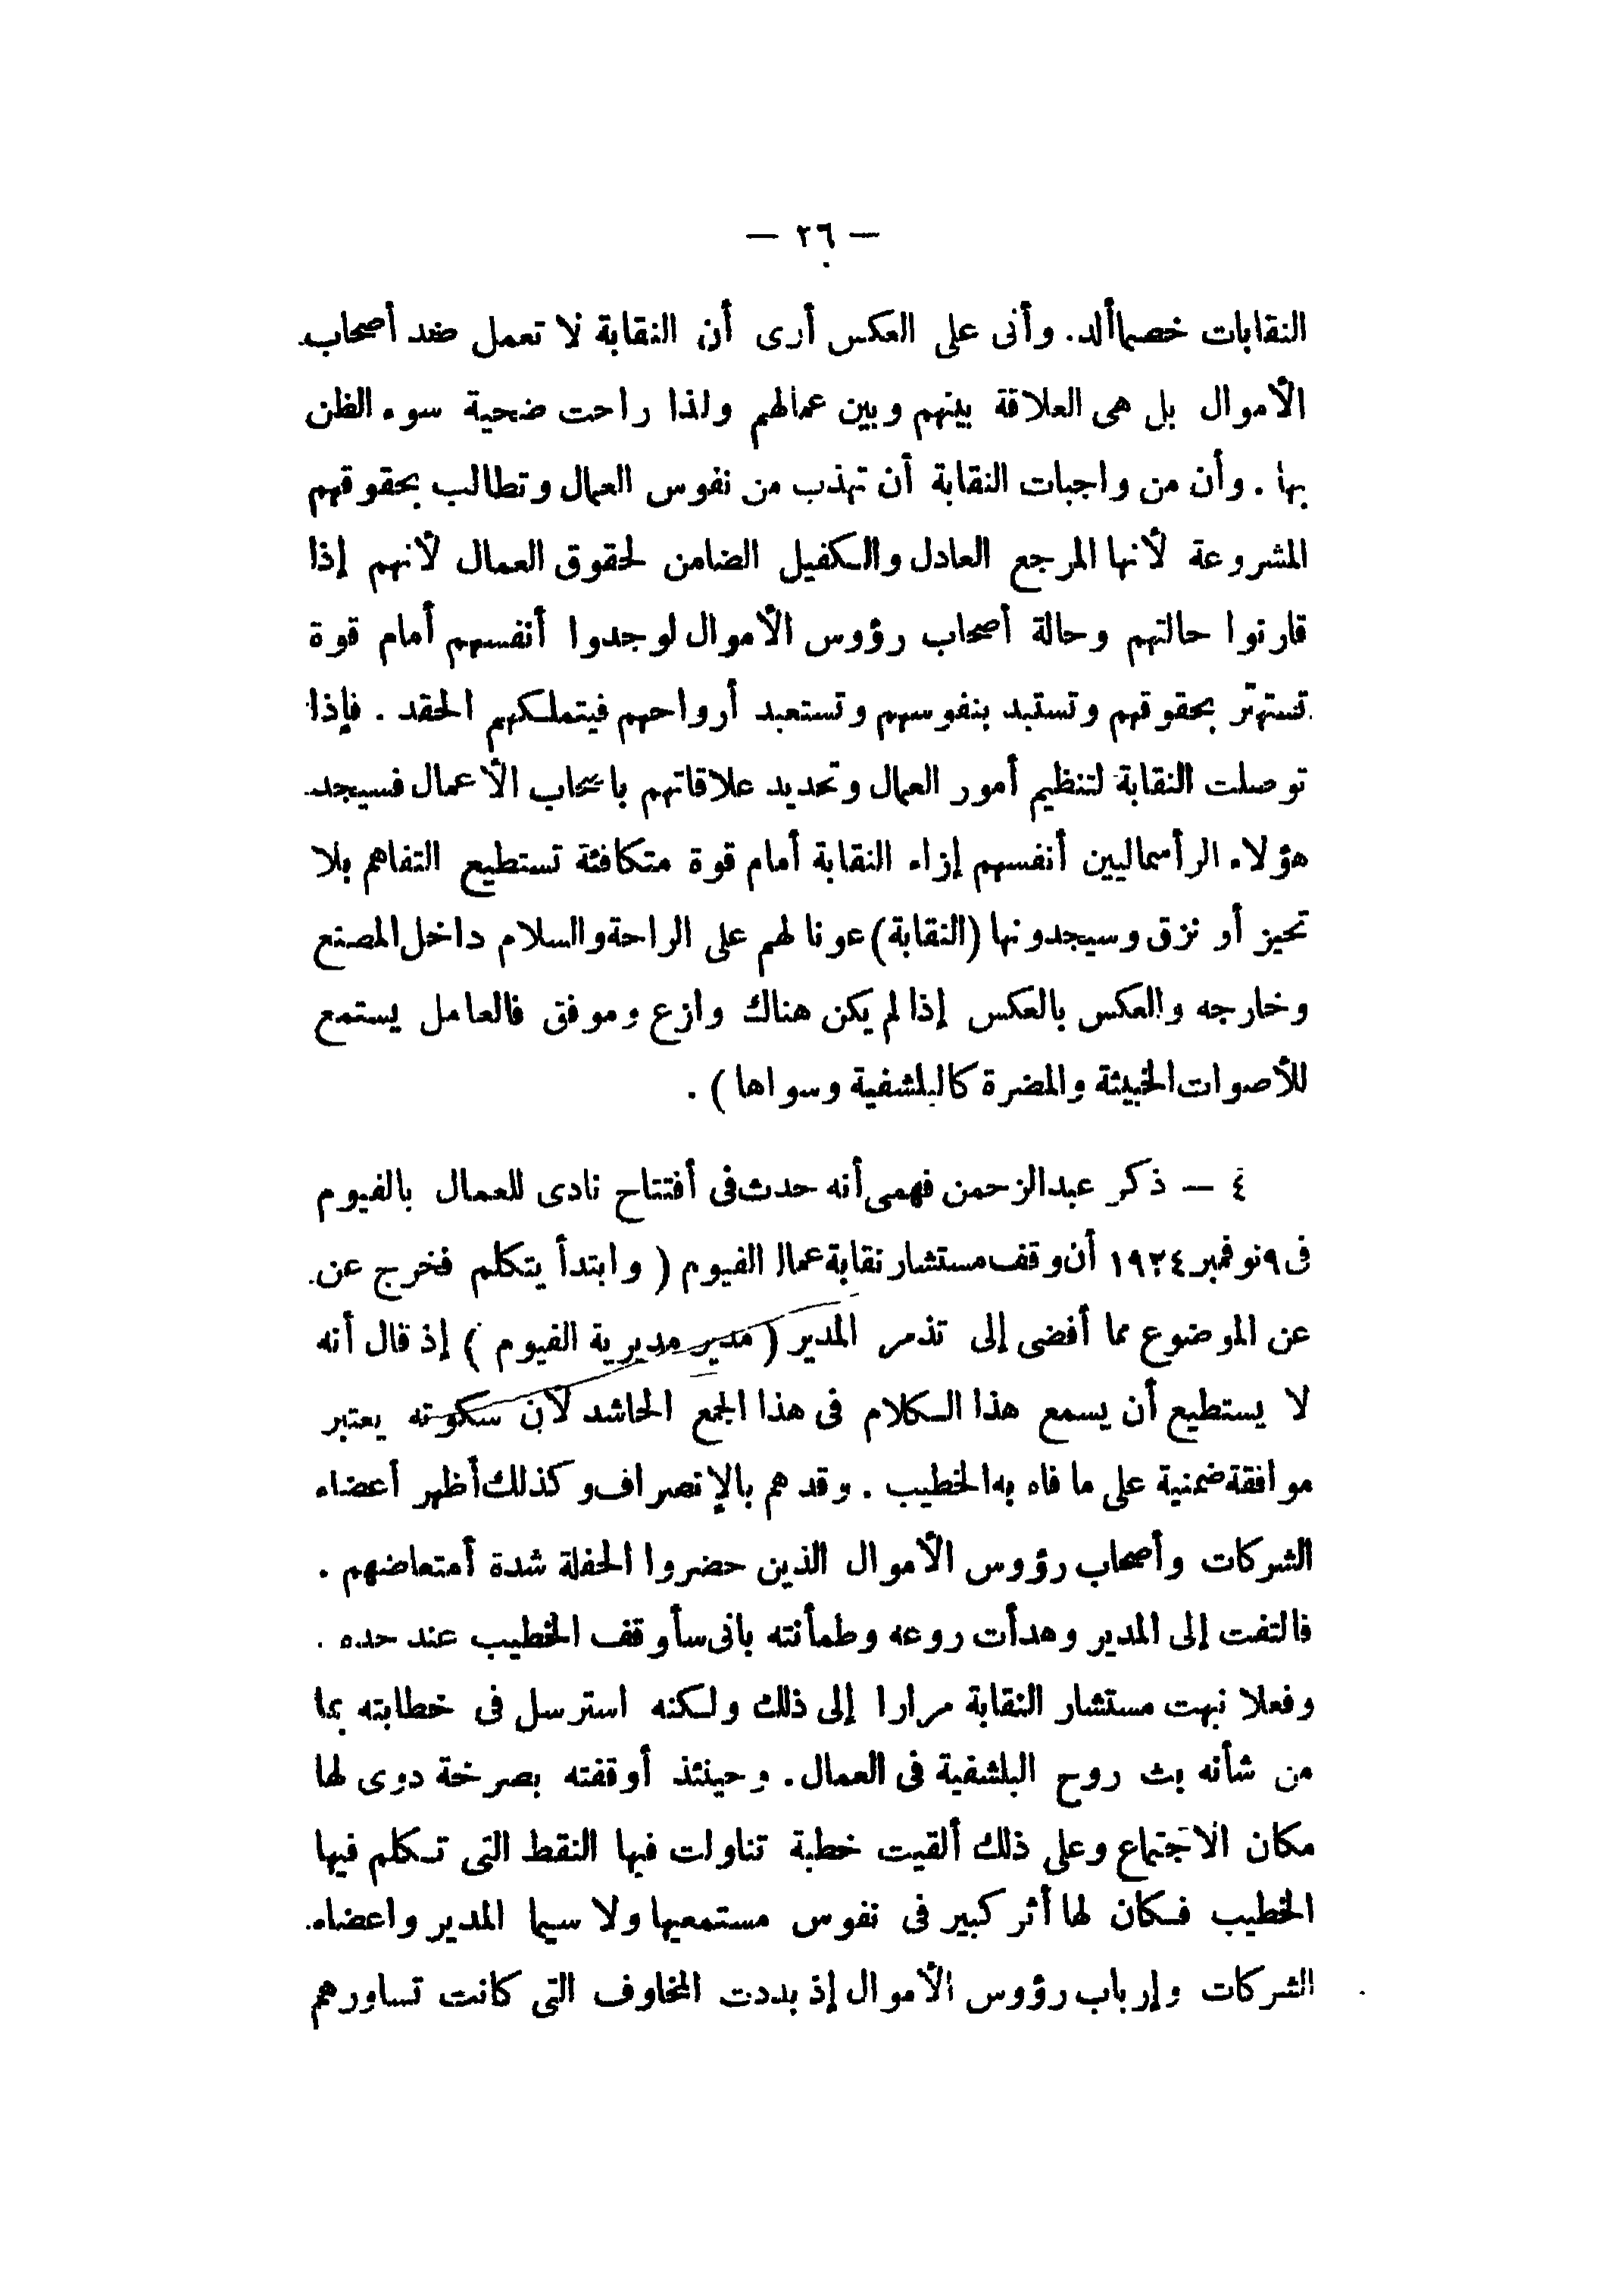 — ٢٦ —
النقابات خصما ألد. وأنى على العكس أرى أن النقابة لا تعمل ضد أصحاب
الأموال بل هى العلاقة بينهم وبين عمالهم ولذا راحت ضحية سوء الظن
بها . وأن من واجبات النقابة أن تهذب من نفوس العمال وتطالب بحقوقهم
المشروعة لأنها المرجع العادل والكفيل الضامن لحقوق العمال لأنهم إذا
قارنوا حالتهم وحالة أصحاب رؤوس الأموال لوجدوا أنفسهم أمام قوة
تستهتر بحقوقهم وتستبد بنفوسهم وتستعبد أرواحهم فيتملكهم الحقد . فإذا
توصلت النقابة لتنظيم أمور العمال وتحديد علاقاتهم باصحاب الأعمال فسيجد
هؤلاء الرأسماليين أنفسهم إزاء النقابة أمام قوة متكافئة تستطيع التفاهم بلا
تحيز أو نزق وسيجدونها (النقابة) عونا لهم على الراحة والسلام داخل المصنع
وخارجه والعكس بالعكس إذا لم يكن هناك وازع وموفق فالعامل يستمع
للأصوات الخبيثة والمضرة كالبلشفية وسواها ) .
٤ — ذكر عبدالرحمن فهمى أنه حدث فى أفتتاح نادى للعمال بالفيوم
فى ٩ نوفمبر ١٩٢٤ أن وقف مستشار نقابة عمال الفيوم ( وابتدأ يتكلم فخرج عن
عن الموضوع مما أفضى إلى تذمر المدير ( مدير مديرية الفيوم ) إذ قال أنه
لا يستطيع أن يسمع هذا الكلام فى هذا الجمع الحاشد لأن سكوته يعتبر
موافقة ضمنية على ما فاه به الخطيب . وقد هم بالإنصراف وكذلك أظهر أعضاء
الشركات وأصحاب رؤوس الأموال الذين حضروا الحفلة شدة أمتعاضهم .
فالتفت إلى المدير وهدأت روعه وطمأنته بانى سأوقف الخطيب عند حده .
وفعلا نبهت مستشار النقابة مرارا إلى ذلك ولكنه استرسل فى خطابته بما
من شأنه بث روح البلشفية فى العمال . وحينئذ أوقفته بصرخة دوى لها
مكان الاجتماع وعلى ذلك ألقيت خطبة تناولت فيها النقط التى تكلم فيها
الخطيب فكان لها أثر كبير فى نفوس مستمعيها ولا سيما المدير واعضاء
الشركات وإرباب رؤوس الأموال إذ بددت المخاوف التى كانت تساورهم